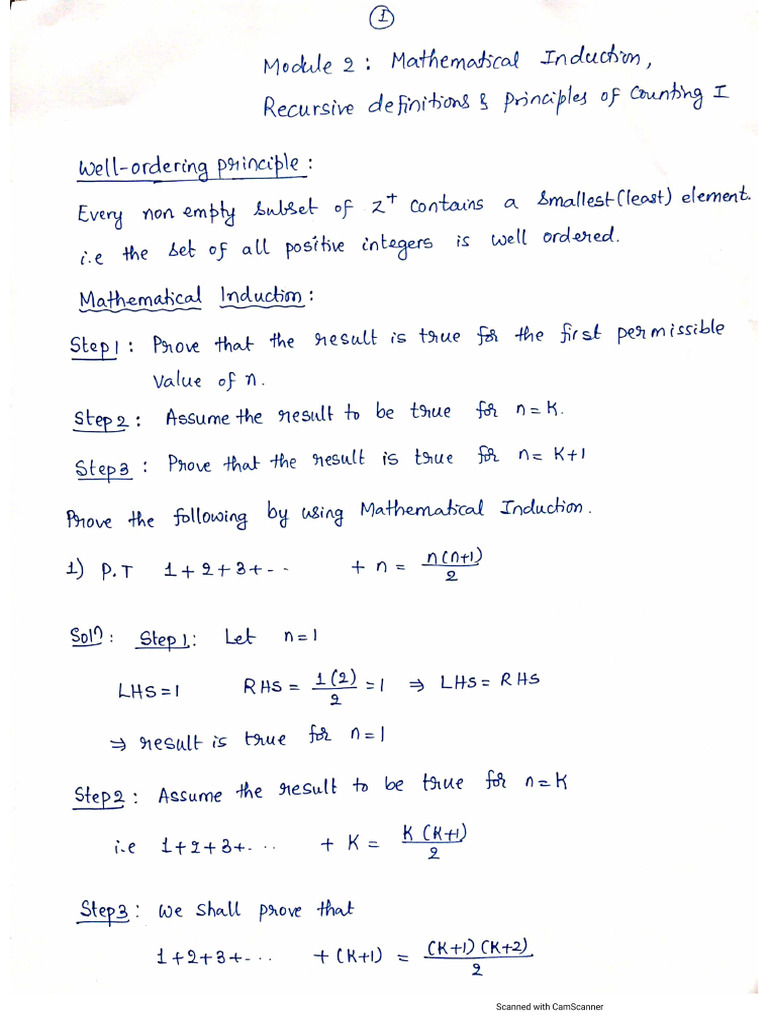 1
Module 2 : Mathematical Induction,
Recursive definitions & Principles of Counting I
Well-ordering principle :
Every non empty subset of Z⁺ contains a smallest (least) element.
i.e the set of all positive integers is well ordered.
Mathematical Induction :
Step 1 : Prove that the result is true for the first permissible
value of n.
Step 2 : Assume the result to be true for n = K.
Step 3 : Prove that the result is true for n = K+1
Prove the following by using Mathematical Induction.
1) P.T 1 + 2 + 3 + - - + n = n(n+1)/2
Soln : Step 1 : Let n = 1
LHS = 1 RHS = 1(2)/2 = 1 ⇒ LHS = RHS
⇒ result is true for n = 1
Step 2 : Assume the result to be true for n = K
i.e 1 + 2 + 3 + - .. + K = K(K+1)/2
Step 3 : We shall prove that
1 + 2 + 3 + - .. + (K+1) = (K+1)(K+2)/2
Scanned with CamScanner